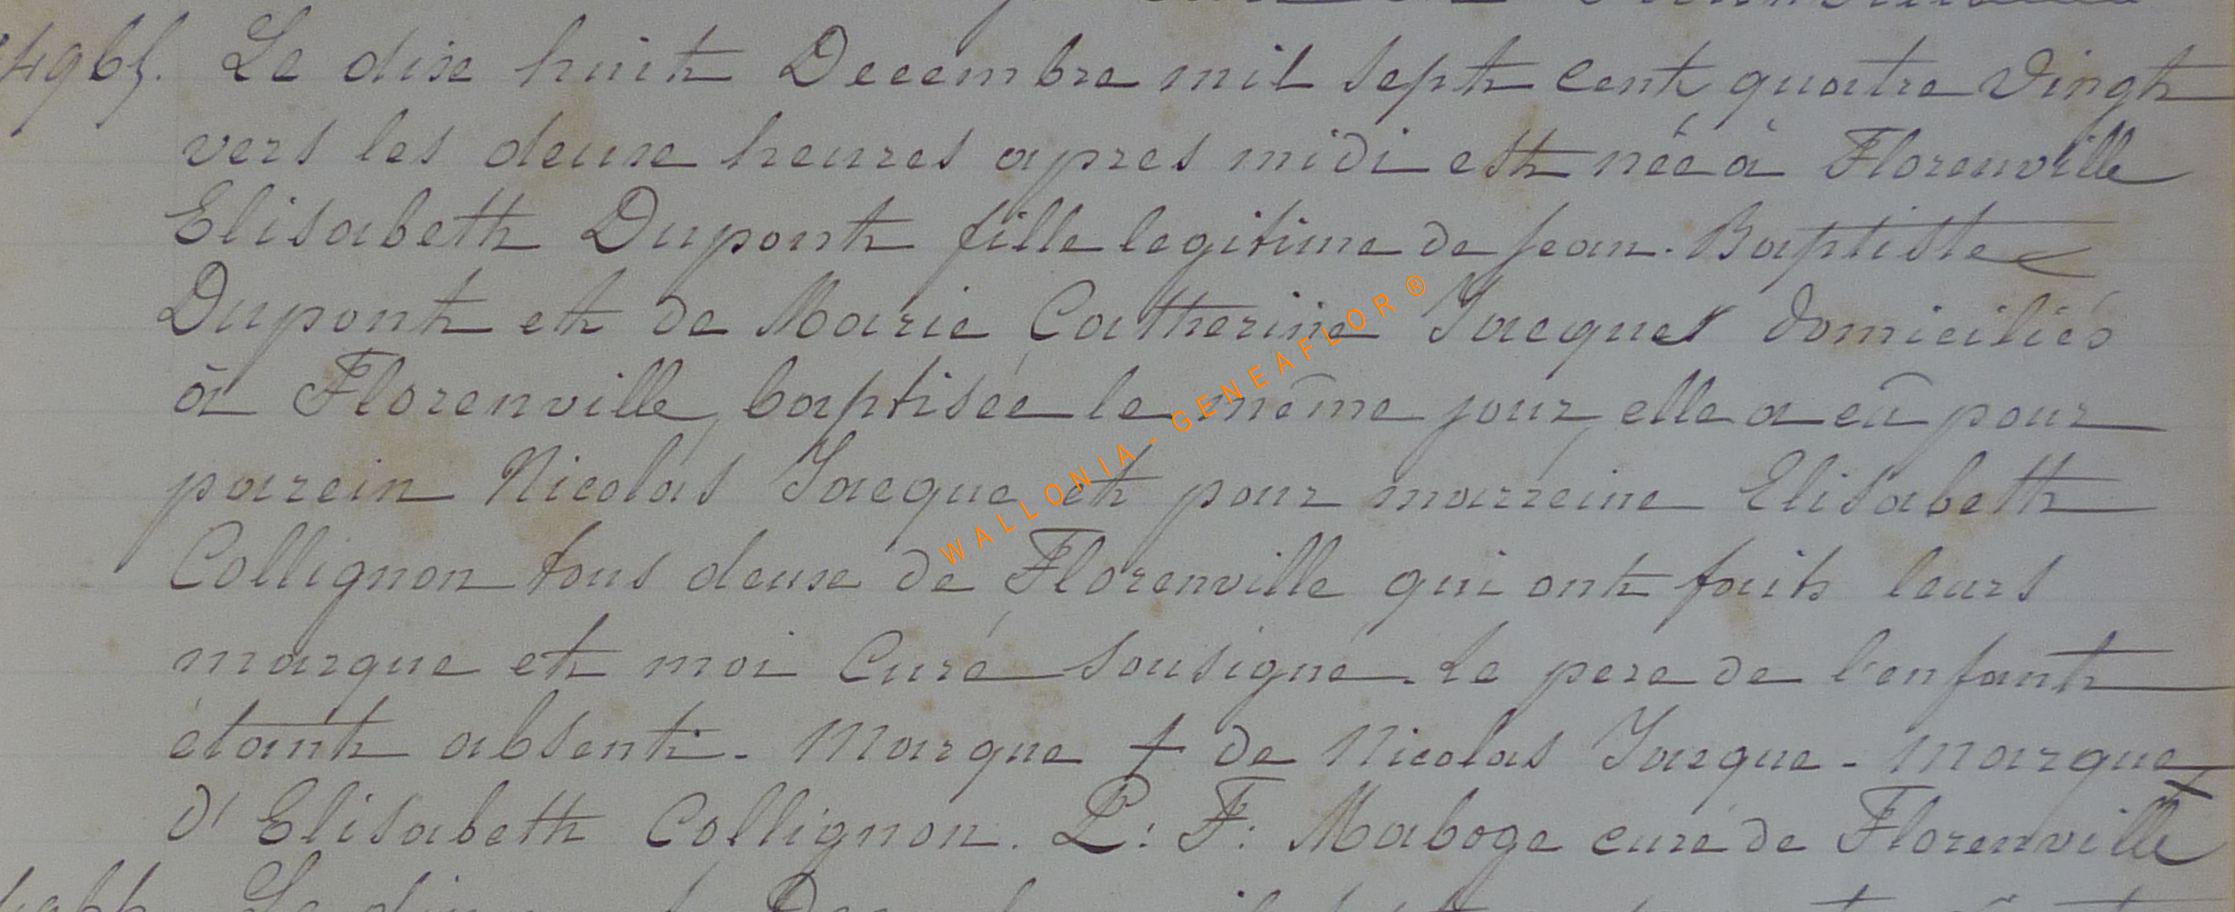 4965. Le dix huit Decembre mil sept cent quatre vingt
vers les deux heures apres midi est née à Florenville
Elisabeth Dupont fille legitime de Jean-Baptiste
Dupont et de Marie Catherine Jacques domiciliés
à Florenville, baptisée le même jour, elle a eû pour
parein Nicolas Jacque et pour marreine Elisabeth
Collignon tous deux de Florenville qui ont fait leurs
marque et moi Curé sousigné. Le pere de l'enfant
étant absent. Marque + de Nicolas Jacque - Marque +
d'Elisabeth Collignon. L: F: Maboge curé de Florenville
WALLONIA - GENEAFLOR ®